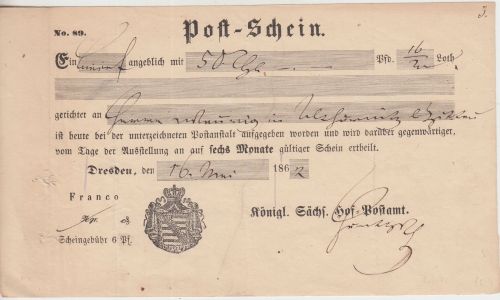 3.
No. 89.
Post-Schein.
Ein Brief angeblich mit 50 Thl. — . — Pfd. 16/m Loth
gerichtet an Herrn in Althörnitz b Zittau
ist heute bei der unterzeichneten Postanstalt aufgegeben worden und wird darüber gegenwärtiger,
vom Tage der Ausstellung an auf sechs Monate gültiger Schein ertheilt.
Dresden, den 16. Mai 1862
Franco
Ngr.
Scheingebühr 6 Pf.
Königl. Sächs. Hof-Postamt.